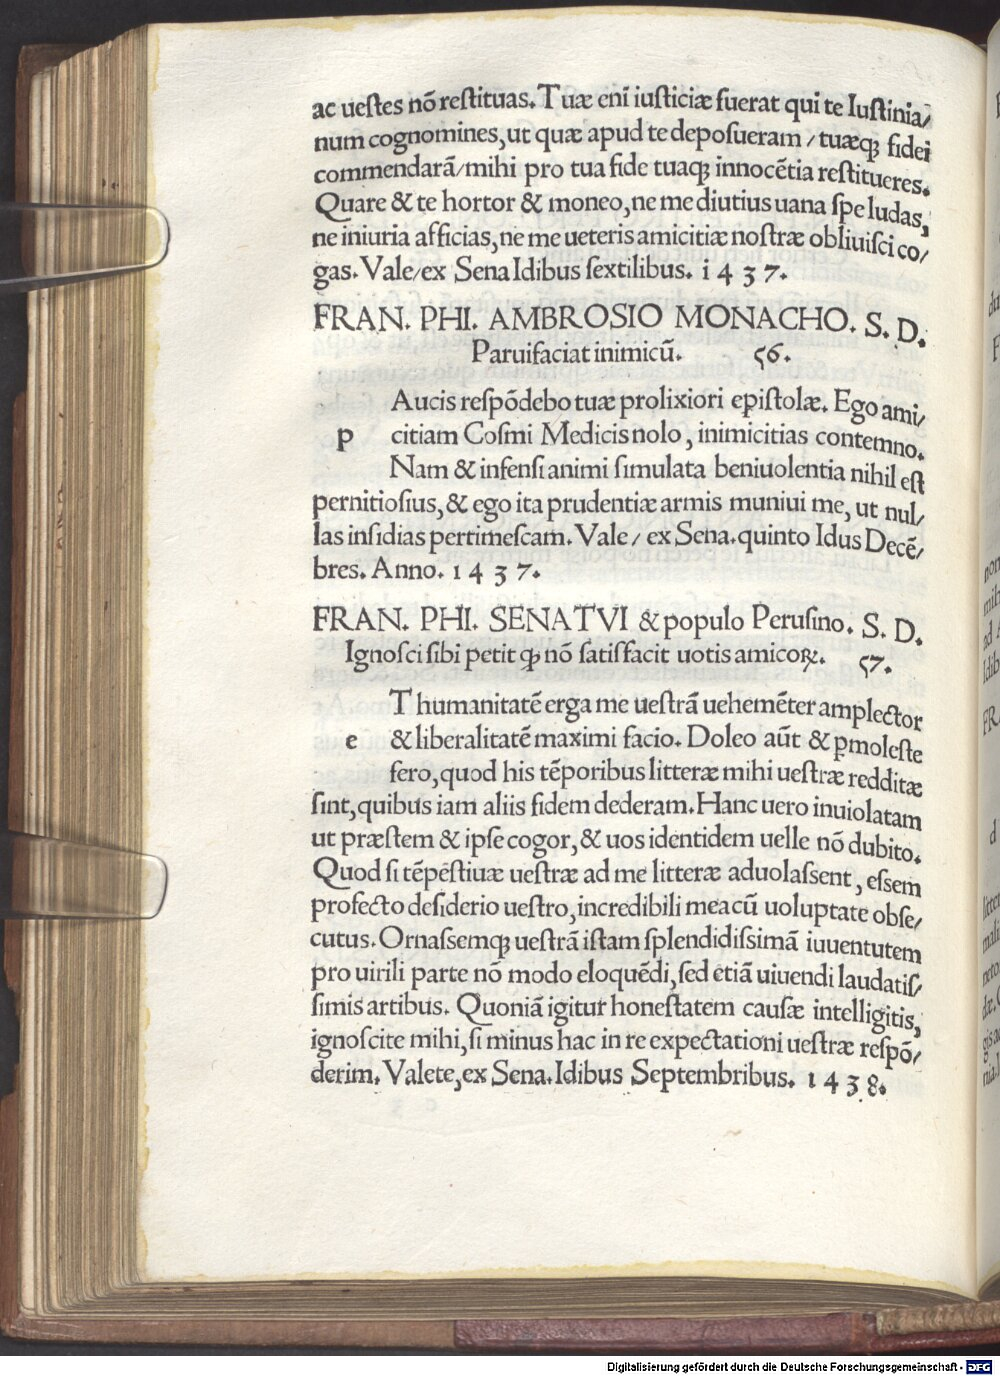 ac uestes nō restituas. Tuæ eni iusticiæ fuerat qui te Iustinia/
num cognomines, ut quæ apud te deposueram / tuæqꝫ fidei
commendarā/mihi pro tua fide tuaqꝫ innocētia restitueres.
Quare & te hortor & moneo, ne me diutius uana spe ludas,
ne iniuria afficias, ne me ueteris amicitiæ nostræ obliuisci co/
gas. Vale/ex Sena Idibus sextilibus. 1437.
FRAN. PHI. AMBROSIO MONACHO. S. D.
Paruifaciat inimicū. 56.
Aucis respōdebo tuæ prolixiori epistolæ. Ego ami/
p citiam Cosmi Medicis nolo, inimicitias contemno.
Nam & infensi animi simulata beniuolentia nihil est
pernitiosius, & ego ita prudentiæ armis muniui me, ut nul/
las insidias pertimescam. Vale / ex Sena. quinto Idus Decē/
bres. Anno. 1437.
FRAN. PHI. SENATVI & populo Perusino. S. D.
Ignosci sibi petit ꝙ nō satisfacit uotis amicoꝝ. 57.
T humanitatē erga me uestrā uehemēter amplector
e & liberalitatē maximi facio. Doleo aūt & ꝑmoleste
fero, quod his tēporibus litteræ mihi uestræ redditæ
sint, quibus iam aliis fidem dederam. Hanc uero inuiolatam
ut præstem & ipse cogor, & uos identidem uelle nō dubito.
Quod si tēpēstiuæ uestræ ad me litteræ aduolassent, essem
profecto desiderio uestro, incredibili mea cū uoluptate obse/
cutus. Ornassemqꝫ uestrā istam splendidissimā iuuentutem
pro uirili parte nō modo eloquēdi, sed etiā uiuendi laudatis/
simis artibus. Quoniā igitur honestatem causæ intelligitis,
ignoscite mihi, si minus hac in re expectationi uestræ respō/
derim. Valete, ex Sena. Idibus Septembribus. 1438.
Digitalisierung gefördert durch die Deutsche Forschungsgemeinschaft - DFG